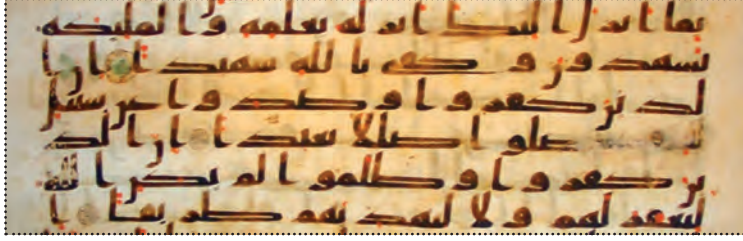 بما انزل اليك انزله بعلمه والمليكه
يشهدون وكفى بالله شهيدا ان ا
لذين كفروا وصدوا عن سبيل
ضلوا ضللا بعيدا ان الذ
ين كفروا وظلموا لم يكن الله
ليغفر لهم ولا ليهديهم طريقا ا